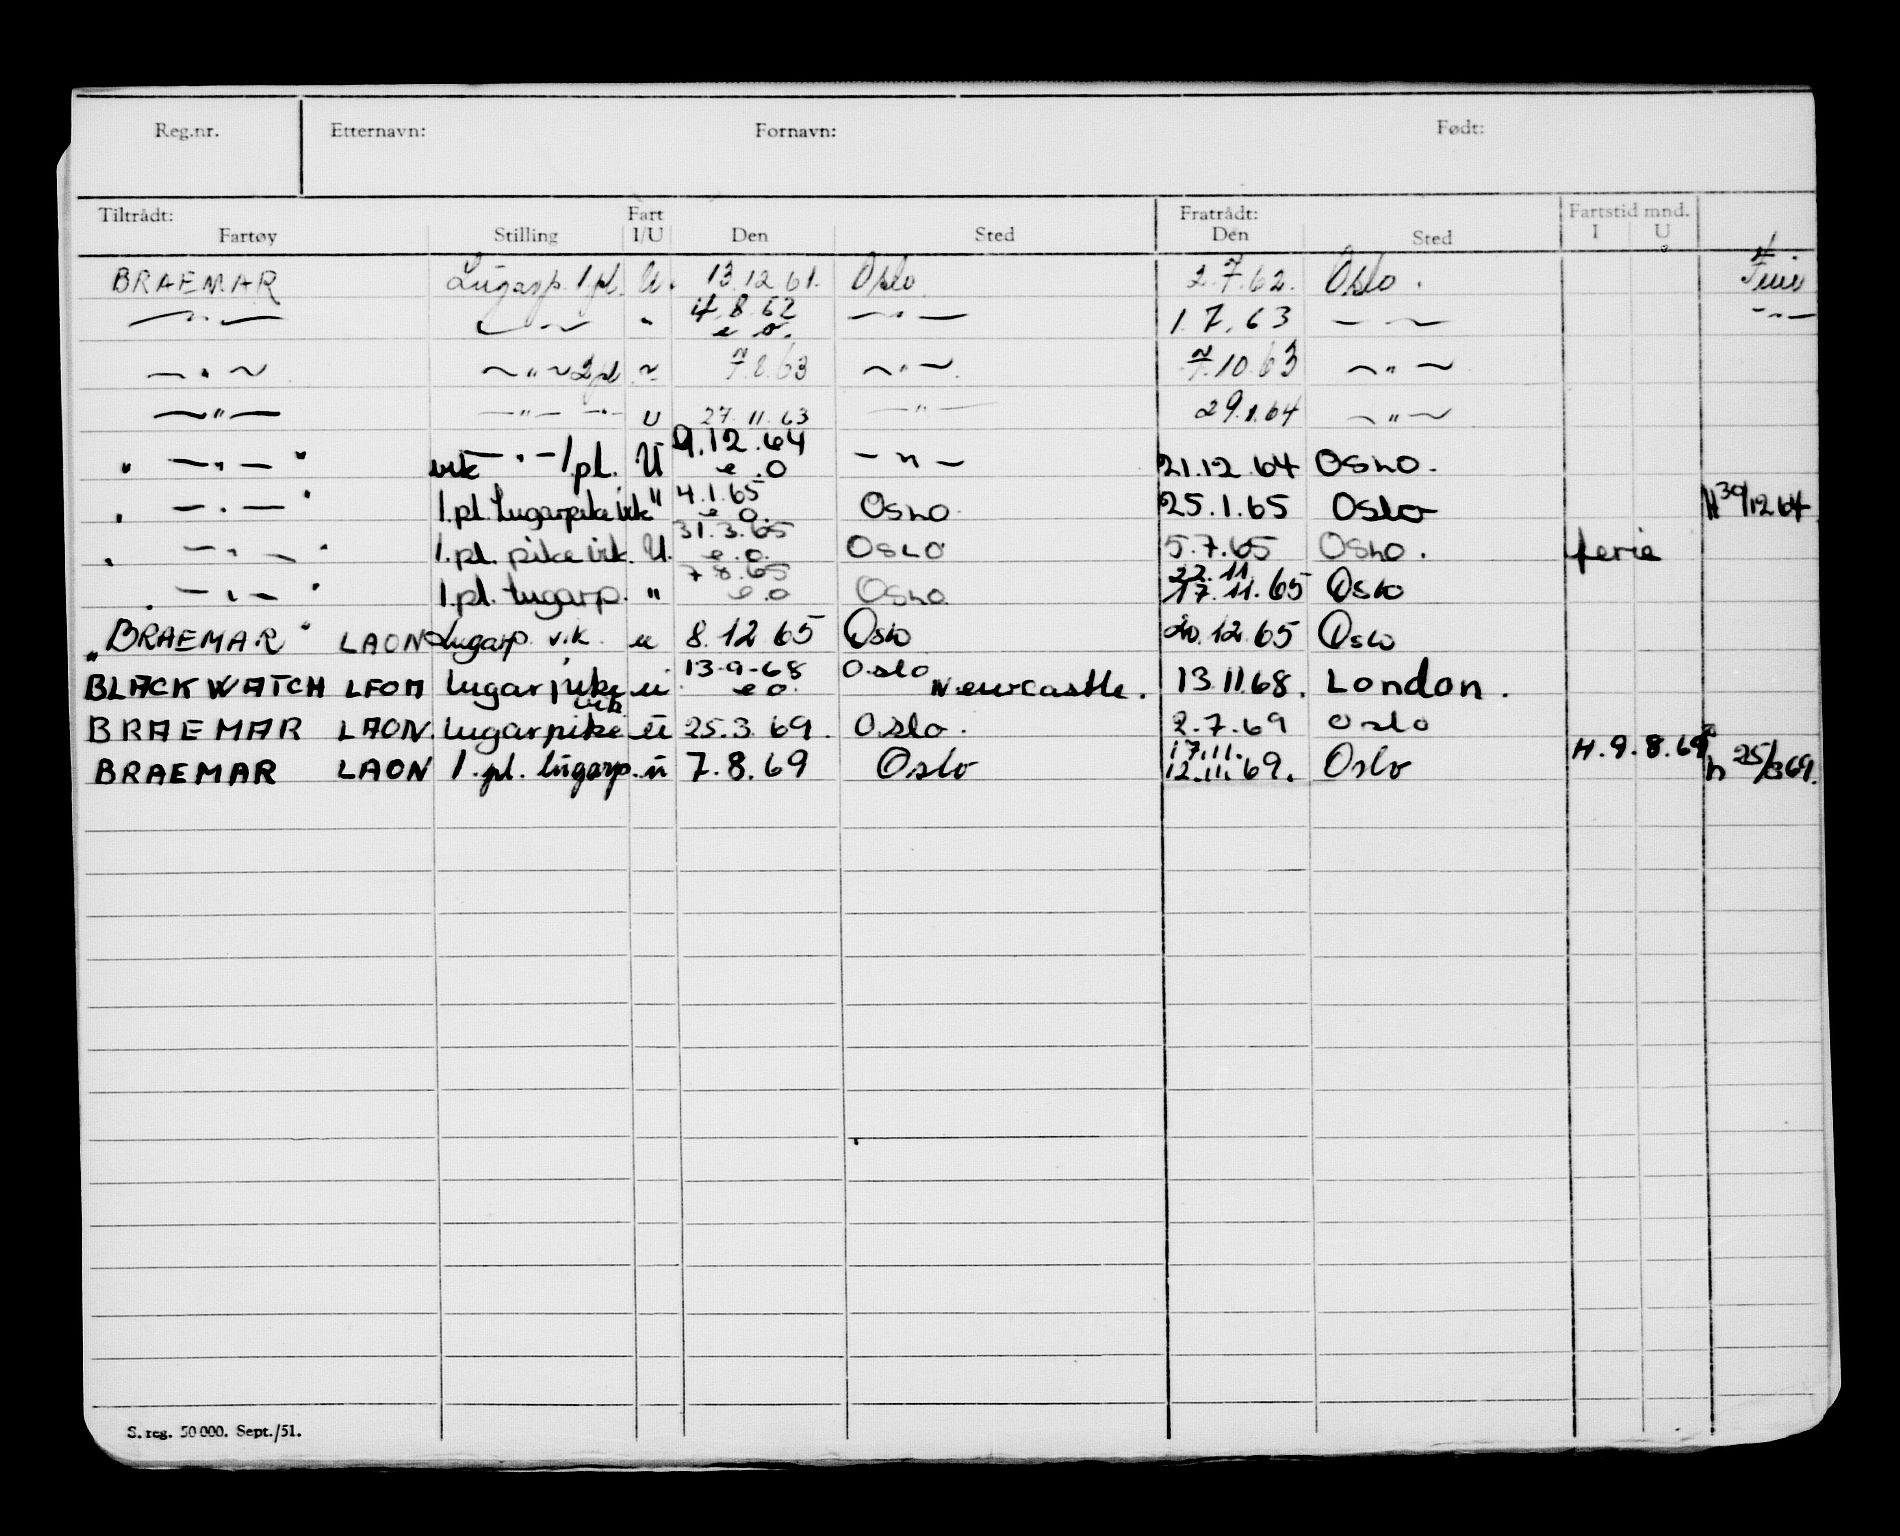 Reg.nr. Etternavn: Fornavn: Født:
Tiltrådt: Fart Fratrådt: Fartstid mnd.
Fartøy Stilling I/U Den Sted Den Sted I U
BRAEMAR Lugarp. 1 pl. U. 13.12.61. Oslo 2.7.62. Oslo.
— " — — " 4.8.62 e.o. — " — 1.7.63 — — — " —
— " — — " — 2 pl " 7.8.63 — " — 7.10.63 — " —
— " — — " — — " — U 27.11.63 — " — 29.1.64 — " —
" — " — " vik — " — 1 pl. U 9.12.64 e.o — " — 21.12.64 Oslo.
" — " — " 1.pl. Lugarpike vik " 4.1.65 e.o. Oslo 25.1.65 Oslo H 30/12 64
" — " — " 1.pl. pike vik. U. 31.3.65 e.o. Oslo 5.7.65 Oslo. ferie
" — " — " 1.pl. Lugarp. " 7.8.65 e.o Oslo 22.11 17.11.65 Oslo
"BRAEMAR" LAON Lugarp. vik. u 8.12.65 Oslo 20.12.65 Oslo
BLACK WATCH LFOM lugarpike vik u 13-9-68 e.o. Oslo Newcastle. 13.11.68. London.
BRAEMAR LAON lugarpike u 25.3.69. Oslo. 2.7.69 Oslo
BRAEMAR LAON 1.pl. lugarp. u 7.8.69 Oslo 17.11. 12.11.69. Oslo H.9.8.69 h 25/3 69.
S. reg. 50 000. Sept./51.